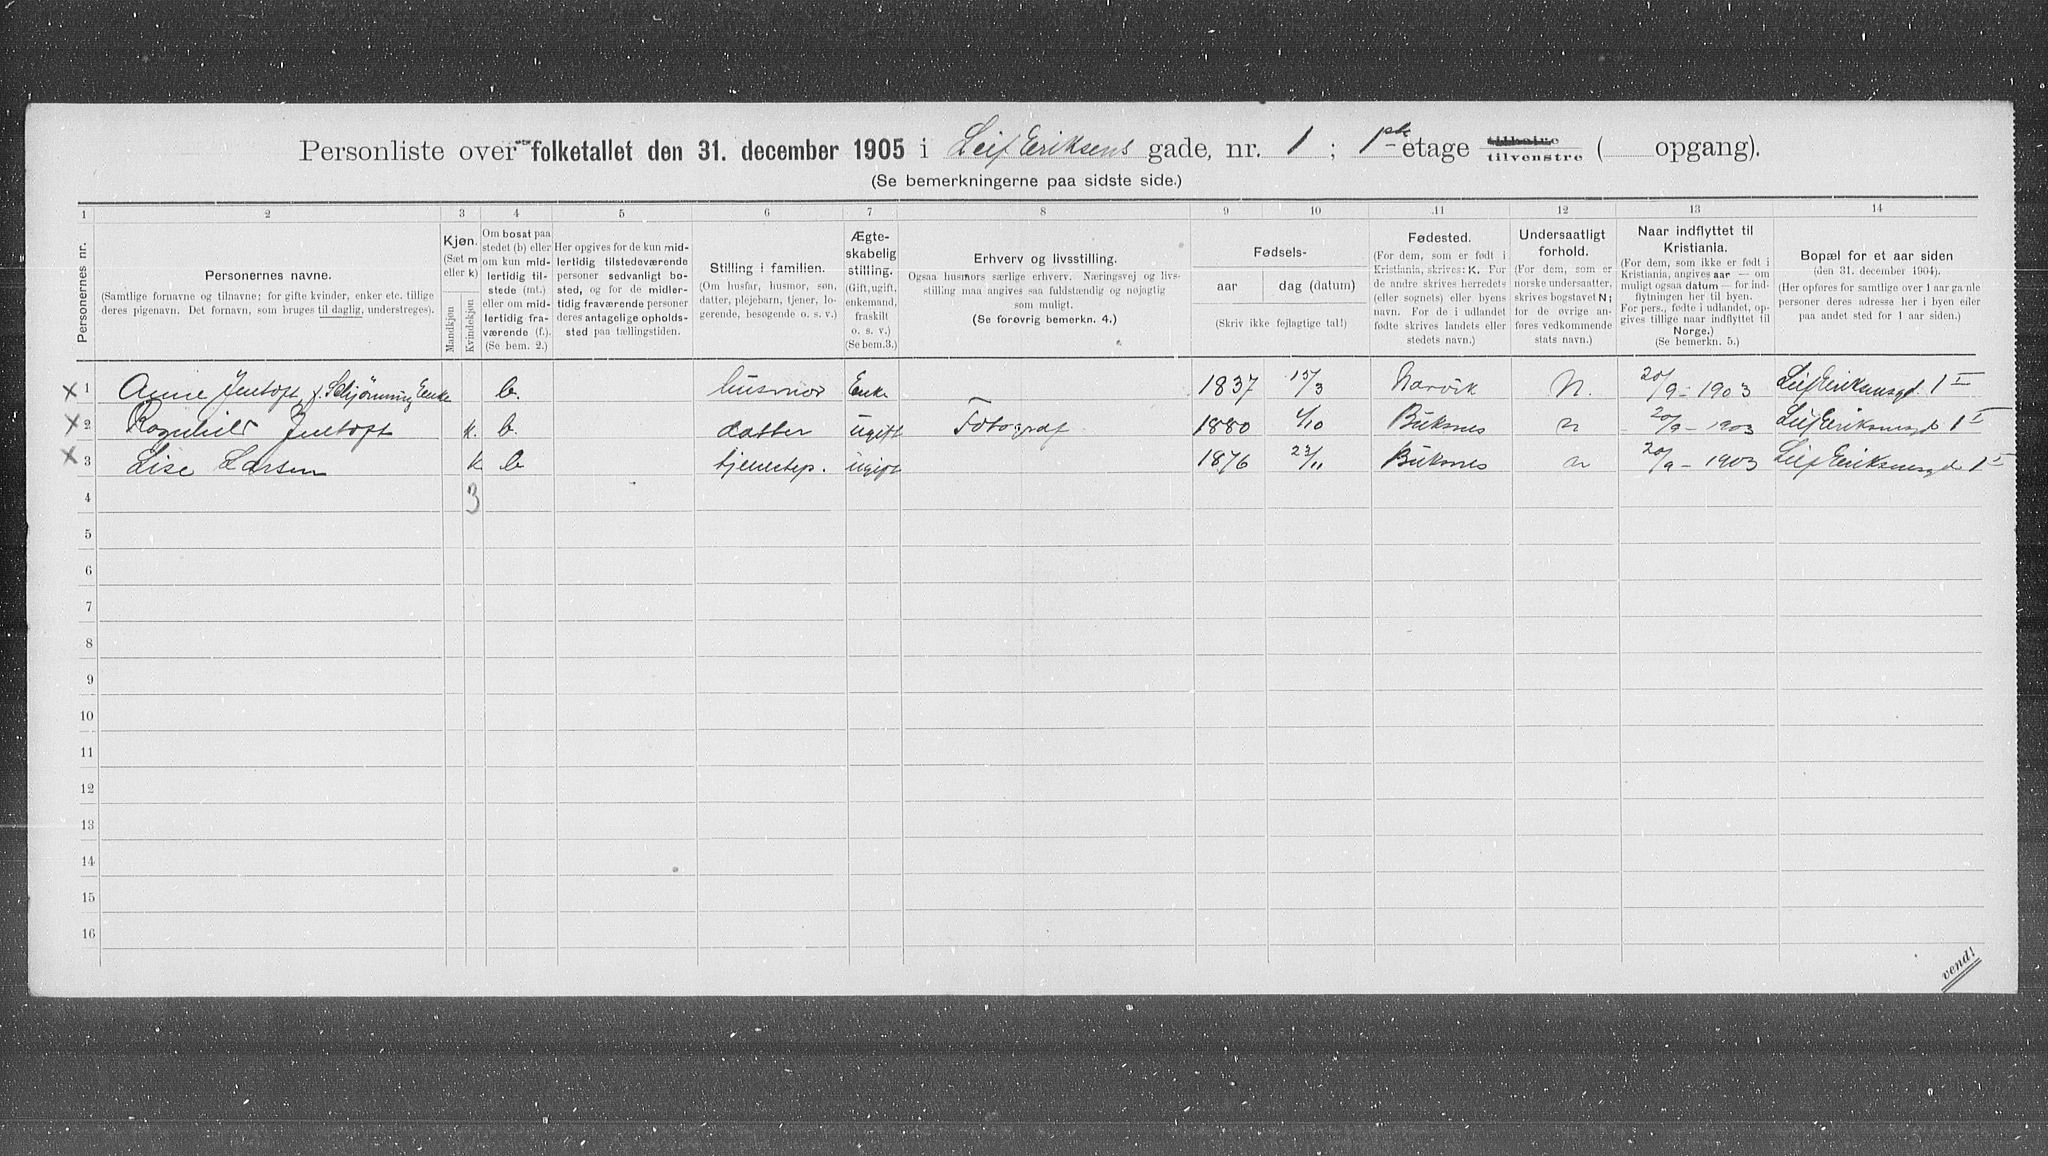 Personliste over folketallet den 31. december 1905 i Leif Eriksens gade, nr. 1 ; 1ste etage tilhøire tilvenstre ( opgang).
(Se bemerkningerne paa sidste side.)
1 2 3 4 5 6 7 8 9 10 11 12 13 14
Personernes nr.
Personernes navne.
(Samtlige fornavne og tilnavne; for gifte kvinder, enker etc. tillige
deres pigenavn. Det fornavn, som bruges til daglig, understreges).
Kjøn.
(Sæt m
eller k)
Mandkjøn
Kvindekjøn
Om bosat paa
stedet (b) eller
om kun midlertidig tilstede (mt.)
eller om midlertidig fraværende (f.).
(Se bem. 2.)
Her opgives for de kun midlertidig tilstedeværende
personer sedvanligt bosted, og for de midlertidig fraværende personer
deres antagelige opholdssted paa tællingstiden.
Stilling i familien.
(Om husfar, husmor, søn,
datter, plejebarn, tjener, logerende, besøgende o. s. v.)
Ægteskabelig
stilling.
(Gift, ugift,
enkemand,
fraskilt
o. s. v.)
(Se bem. 3.)
Erhverv og livsstilling.
Ogsaa husmors særlige erhverv. Næringsvej og livsstilling maa angives saa fuldstændig og nøjagtig
som muligt.
(Se forøvrig bemerkn. 4.)
Fødsels-
aar dag (datum)
(Skriv ikke fejlagtige tal!)
Fødested.
(For dem, som er født i
Kristiania, skrives: K. For
de andre skrives herredets
(eller sognets) eller byens
navn. For de i udlandet
fødte skrives landets eller
stedets navn.)
Undersaatligt
forhold.
(For dem, som er
norske undersaatter,
skrives bogstavet N;
for de øvrige anføres vedkommende
stats navn.)
Naar indflyttet til
Kristiania.
(For dem, som ikke er født i
Kristiania, angives aar — om
muligt ogsaa datum — for indflytningen her til byen.
For pers., fødte i udlandet, opgives tillige naar indflyttet til
Norge.)
(Se bemerkn. 5.)
Bopæl for et aar siden
(den 31. december 1904).
(Her opføres for samtlige over 1 aar gamle
personer deres adresse her i byen eller
paa andet sted for 1 aar siden.)
x 1 Anne Jentoft f. Schjønning Enke b. husmor Enke 1837 15/3 Narvik N. 20/9 - 1903 Leif Eriksensgd. 1 I
x 2 Ragnhild Jentoft k. b. datter ugift Fotograf 1880 4/10 Buksnes n 20/9 - 1903 Leif Eriksensgd 1 I
x 3 Lise Larsen k b tjenestep. ugift 1876 23/11 Buksnes n 20/9 - 1903 Leif Eriksensgd 1 I
4 3
5
6
7
8
9
10
11
12
13
14
15
16
vend!